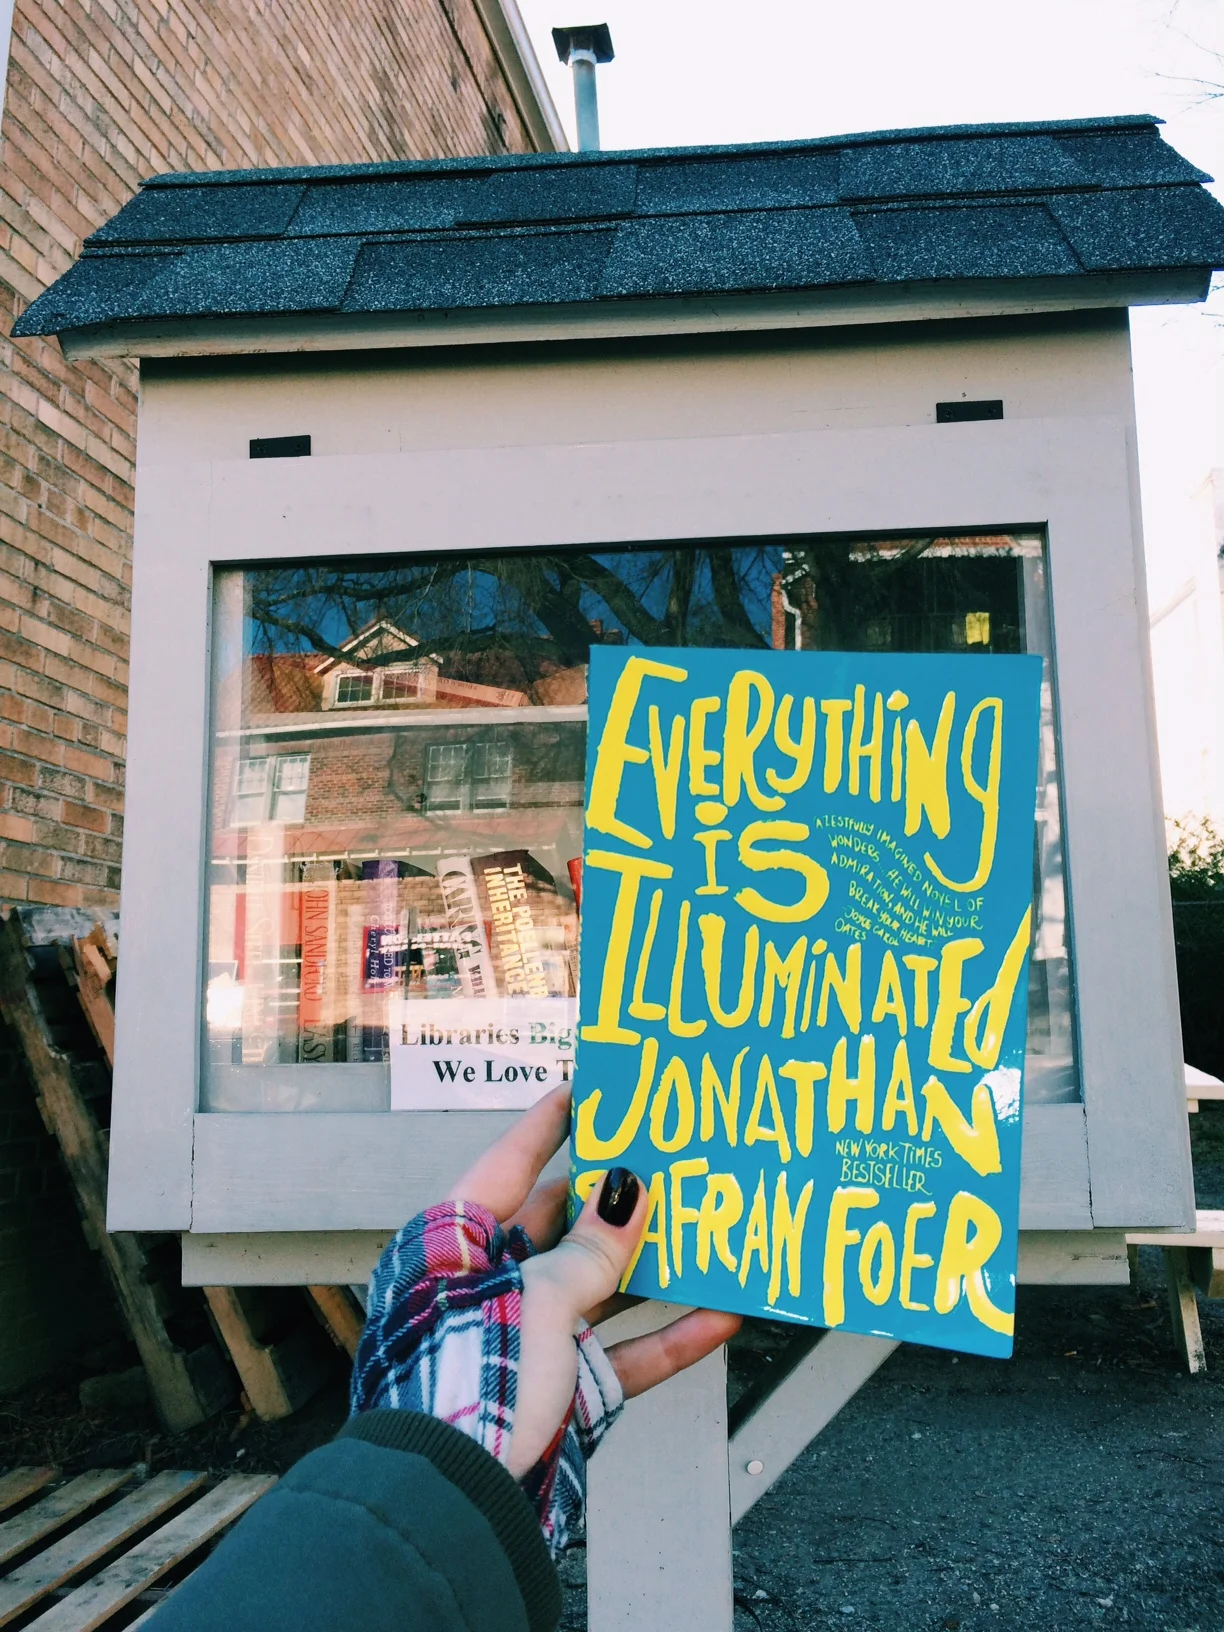 EVERYTHiNG
iS
ILLUMiNATEd
"A ZESTFULLY IMAGINED NOVEL OF
WONDERS... HE WILL WIN YOUR
ADMIRATION, AND HE WILL
BREAK YOUR HEART."
JOYCE CAROL
OATES
JONATHAN
SAFRAN FOER
NEW YORK TIMES
BESTSELLER
JOHN SANDFORD
THE PORTLAND
INHERITANCE
Libraries Big
We Love T